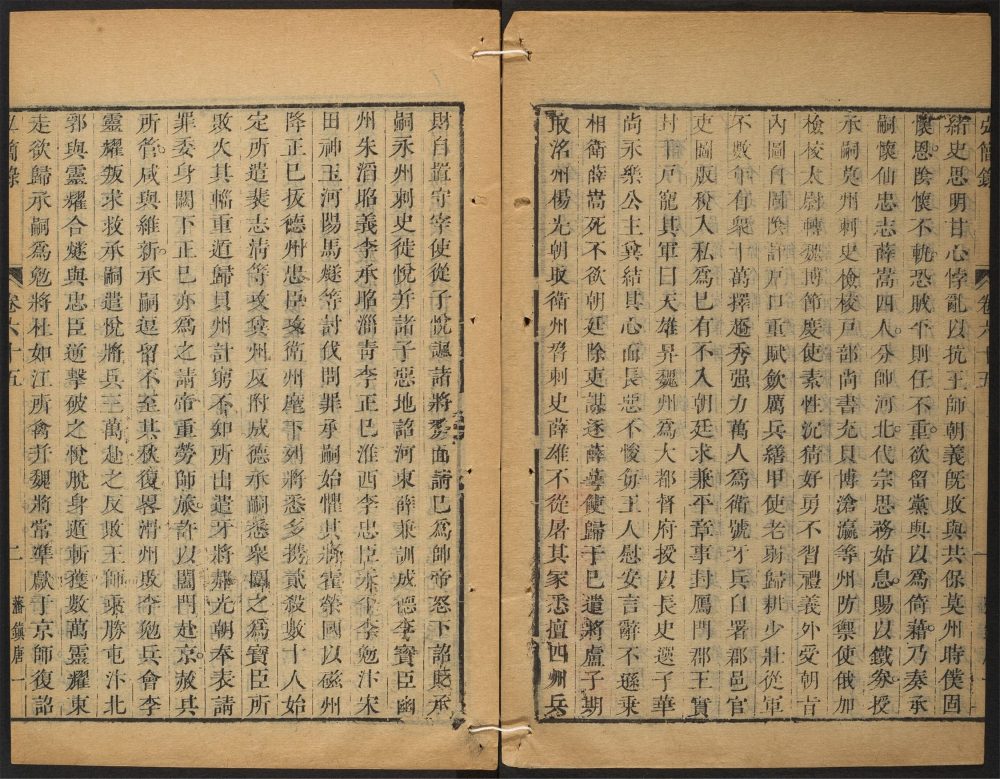 緒史思明甘心悖亂以抗王師朝義既敗與共保莫州時僕固
懷恩陰懷不軌恐賊平則任不重欲留黨與以為倚藉乃奏承
嗣懷仙忠志薛嵩四人分帥河北代宗思務姑息賜以鐵券授
承嗣莫州刺史檢校戸部尚書充貝博滄瀛等州防禦使俄加
檢校太尉轉魏博節度使素性沉猜好勇不習禮義外受朝旨
內圖自固陰計戸口重賦斂厲兵繕甲使老弱歸耕少壯從軍
不數年有衆十萬擇趫秀强力萬人為衛號牙兵自署郡邑官
吏圖版稅入私為已有不入朝廷求兼平章事封鴈門郡王實
封千戸寵其軍曰天雄昇魏州為大都督府授以長史選子華
尚永樂公主冀結其心而長惡不悛每王人慰安言辭不遜乘
相衛薛嵩死不欲朝廷除吏謀逐薛蕚使歸于已遣將盧子期
取洺州楊光朝取衛州脅刺史薛雄不從屠其家悉擅四州兵
財自置守宰使從子悅諷諸將 請已為帥帝怒下詔貶承
嗣永州刺史徙悅并諸子惡地詔河東薛兼訓成德李寶臣幽
州朱滔昭義李承昭淄靑李正巳淮西李忠臣永平李勉汴宋
田神玉河陽馬燧等討伐問罪承嗣始懼其將霍榮國以磁州
降正巳拔德州忠臣攻衛州麾下列將悉多携貳殺數十人始
定所遣裴志淸等攻冀州反附成德承嗣悉衆圍之為寶臣所
敗火其輜重遁歸貝州計窮不知所出遣牙將郝光朝奉表請
罪委身闕下正巳亦為之請帝重勞師旅許以闔門赴京赦其
所管咸與維新承嗣逗留不至其秋復畧滑州敗李勉兵會李
靈耀叛求救承嗣遣悅將兵三萬赴之反敗王師乘勝屯汴北
郭與靈耀合燧與忠臣逆擊破之悅脫身遁斬獲數萬靈耀東
走欲歸承嗣為勉將杜如江所禽并魏將常準獻于京師復詔
弘簡錄
卷六十五
二
藩鎭唐一